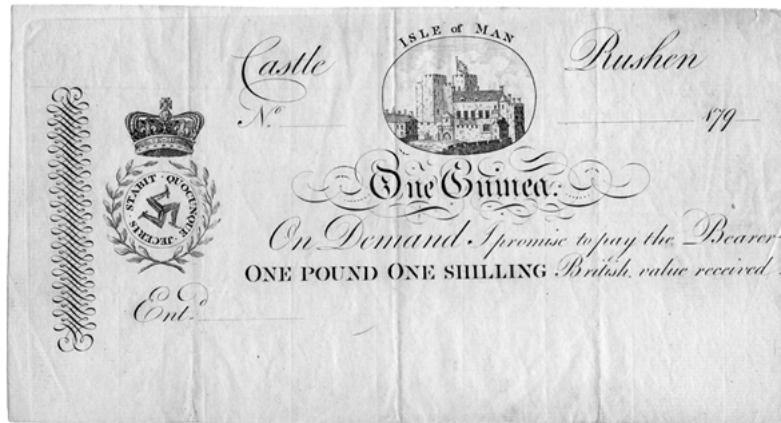 ISLE of MAN
Castle Rushen
No. 179
QUOCUNQUE · JECERIS · STABIT ·
One Guinea:
On Demand I promise to pay the Bearer
ONE POUND ONE SHILLING British value received.
Ent.d